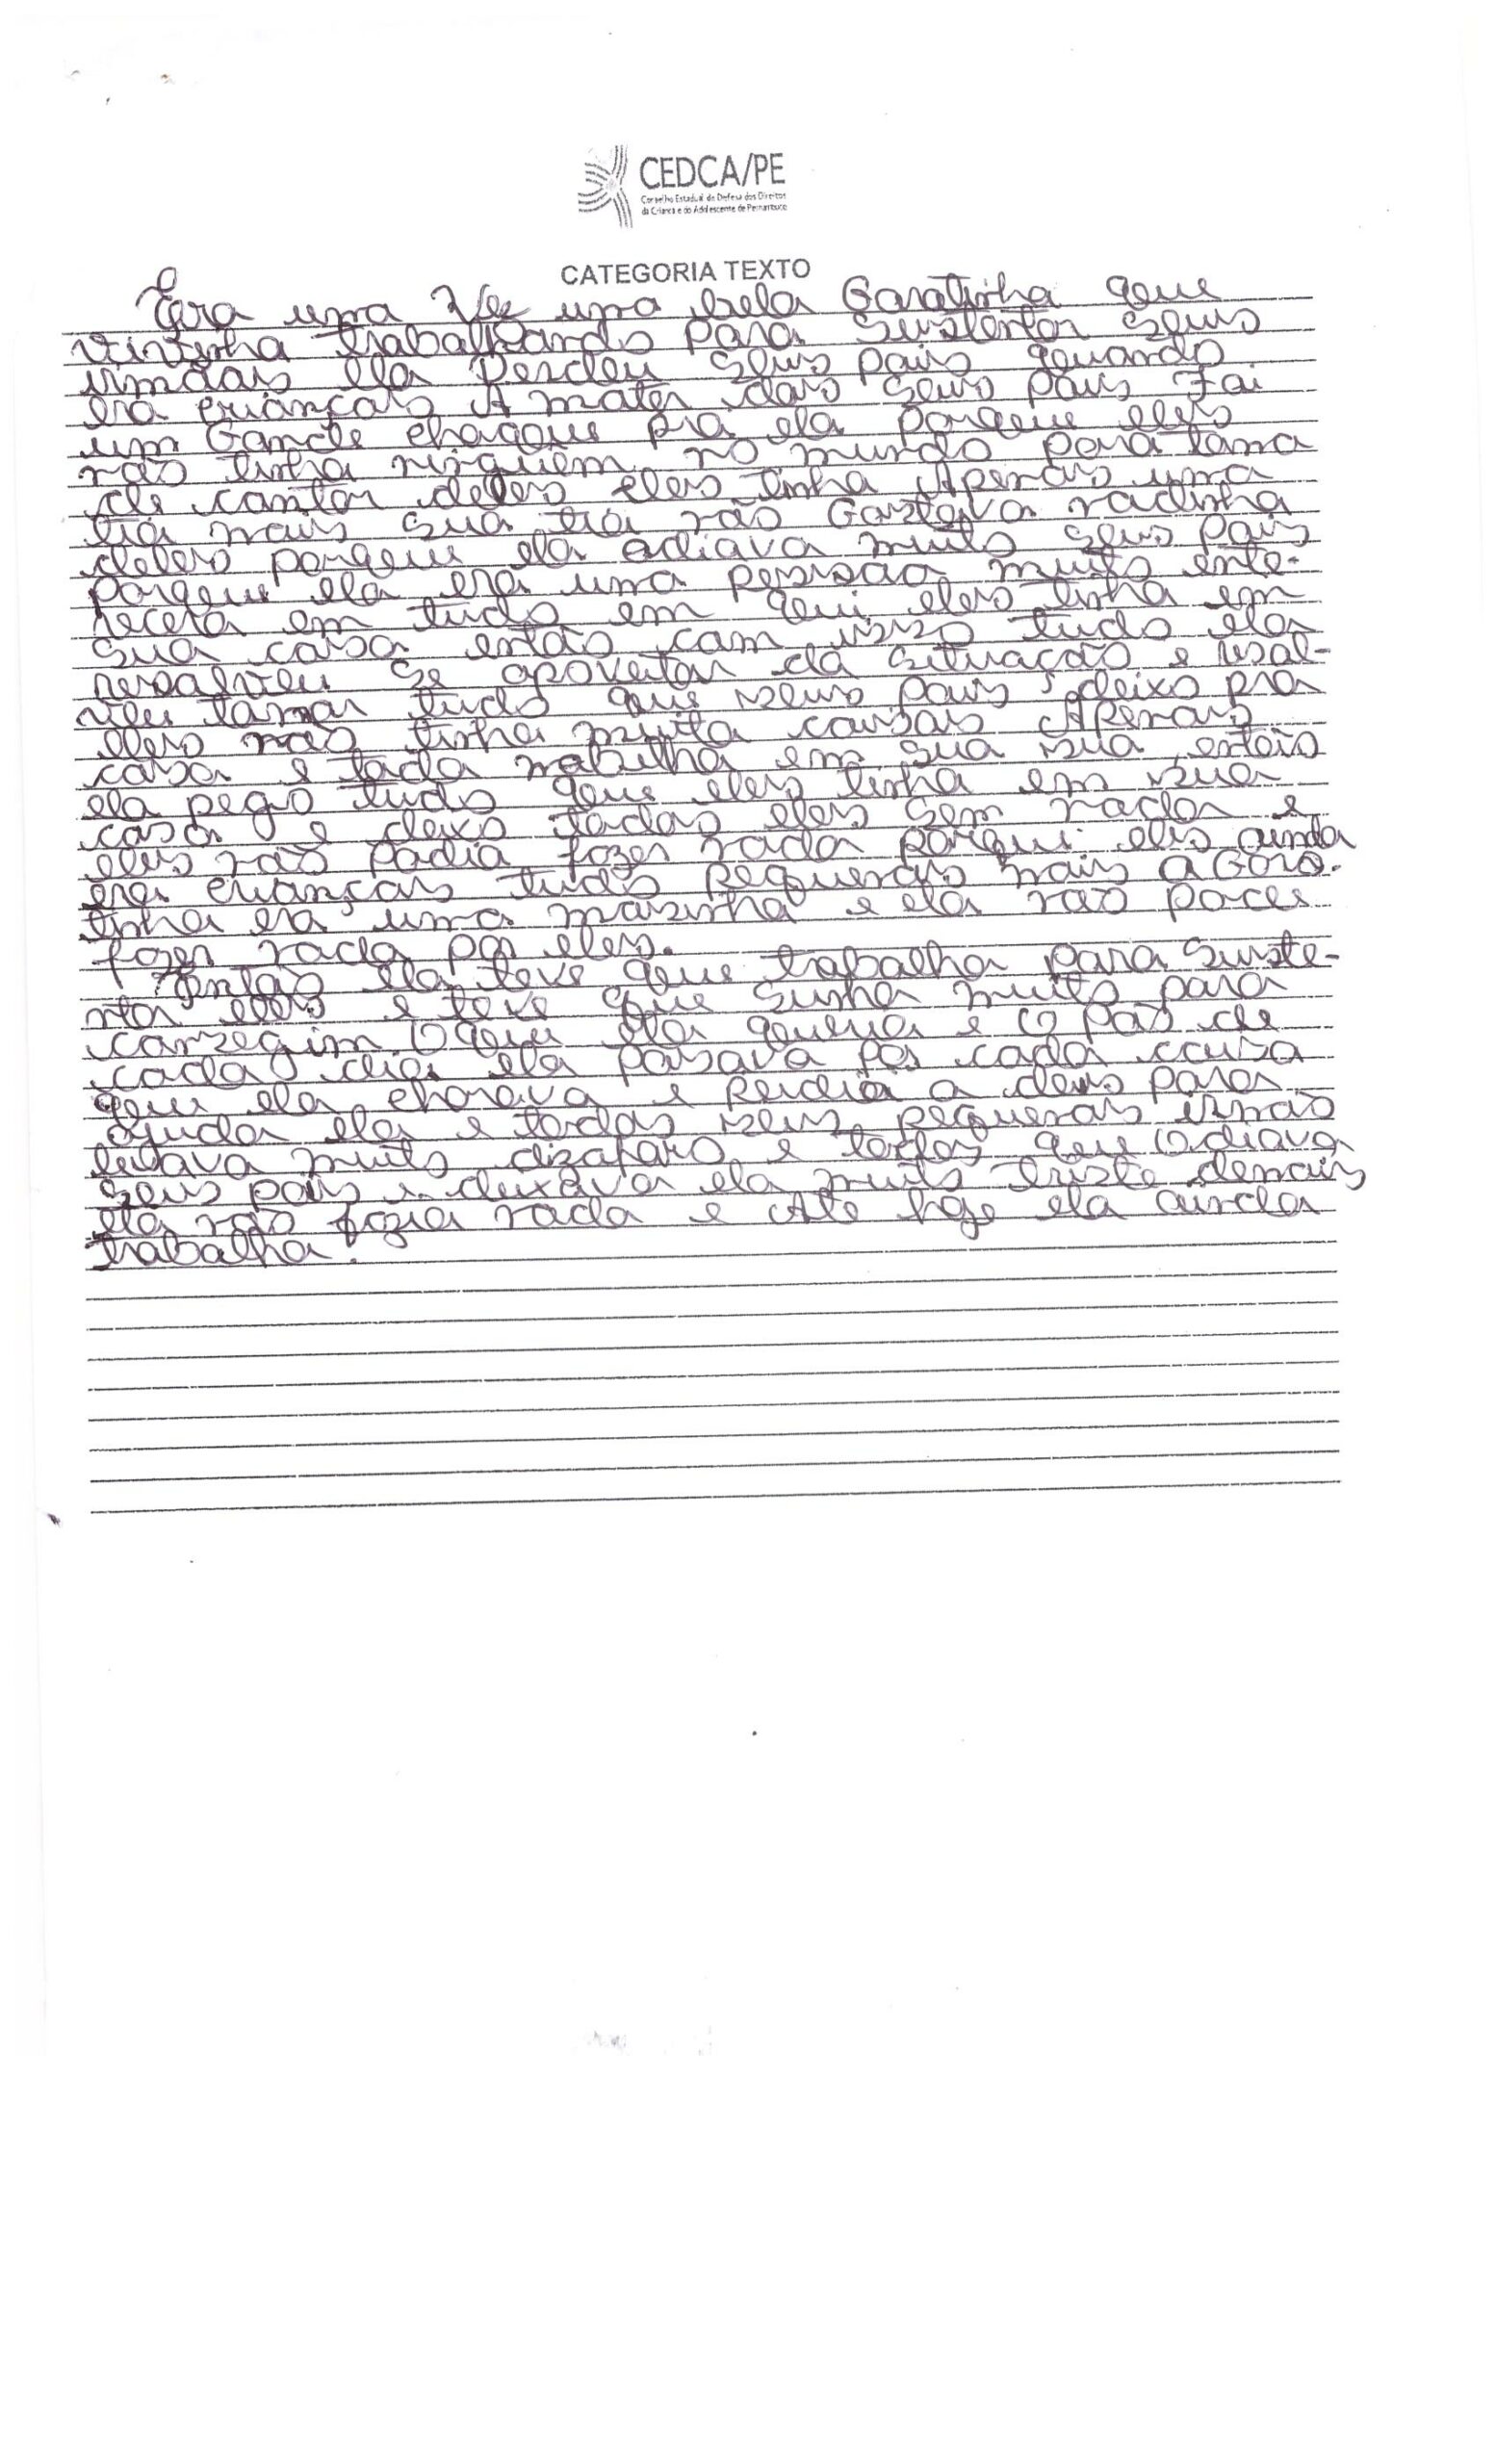 CEDCA/PE
Conselho Estadual de Defesa dos Direitos
da Criança e do Adolescente de Pernambuco
CATEGORIA TEXTO
Era uma Vez uma bela Garatinha que
Vivinha trabalhando para Sustentar Seus
irmãais ela Perdeu Seus pais quando
era criançais A mater dais Seus Pais Foi
um Gande chaque pra ela porque eles
não tinha ninguém no mundo para tama
de cantar deles eles tinha Apenais uma
tia mais Sua tia não Gostava nadinha
deles porque ela odiava muito Seus Pais
Porque ela era uma pessoa muito ente-
recera em tudo em qui eles tinha em
Sua casa então cam isso tudo ela
resalveu Se apoveitar da Situação e resal-
veu tamar tudo que seus pais deixo pra
eles não tinha muita caisais Apenais
casa e tada mabilha em Sua sua entais
ela pego tudo que eles tinha em sua
casa e deixo tados eles Sem nada e
eles não padia fazer nada porqui eles ainda
era criançais tudo Pequenais mais a Gara-
tinha era uma mazinha e ela não pode
fazer nada por eles.
Então ela teve que trabalha para Suste-
nta eles e teve que Sunha muito para
canzegim O que ela queria e O Pão de
cada dia ela pasava por cada couisa
que ela chorava e Perdia a deus para
ajuda ela e todas seus pequenais irmão
levava muito dizaparo e todos que Odiava
Seus pais e deixava ela muito triste demais
ela não fazia nada e Até hoje ela ainda
trabalha.